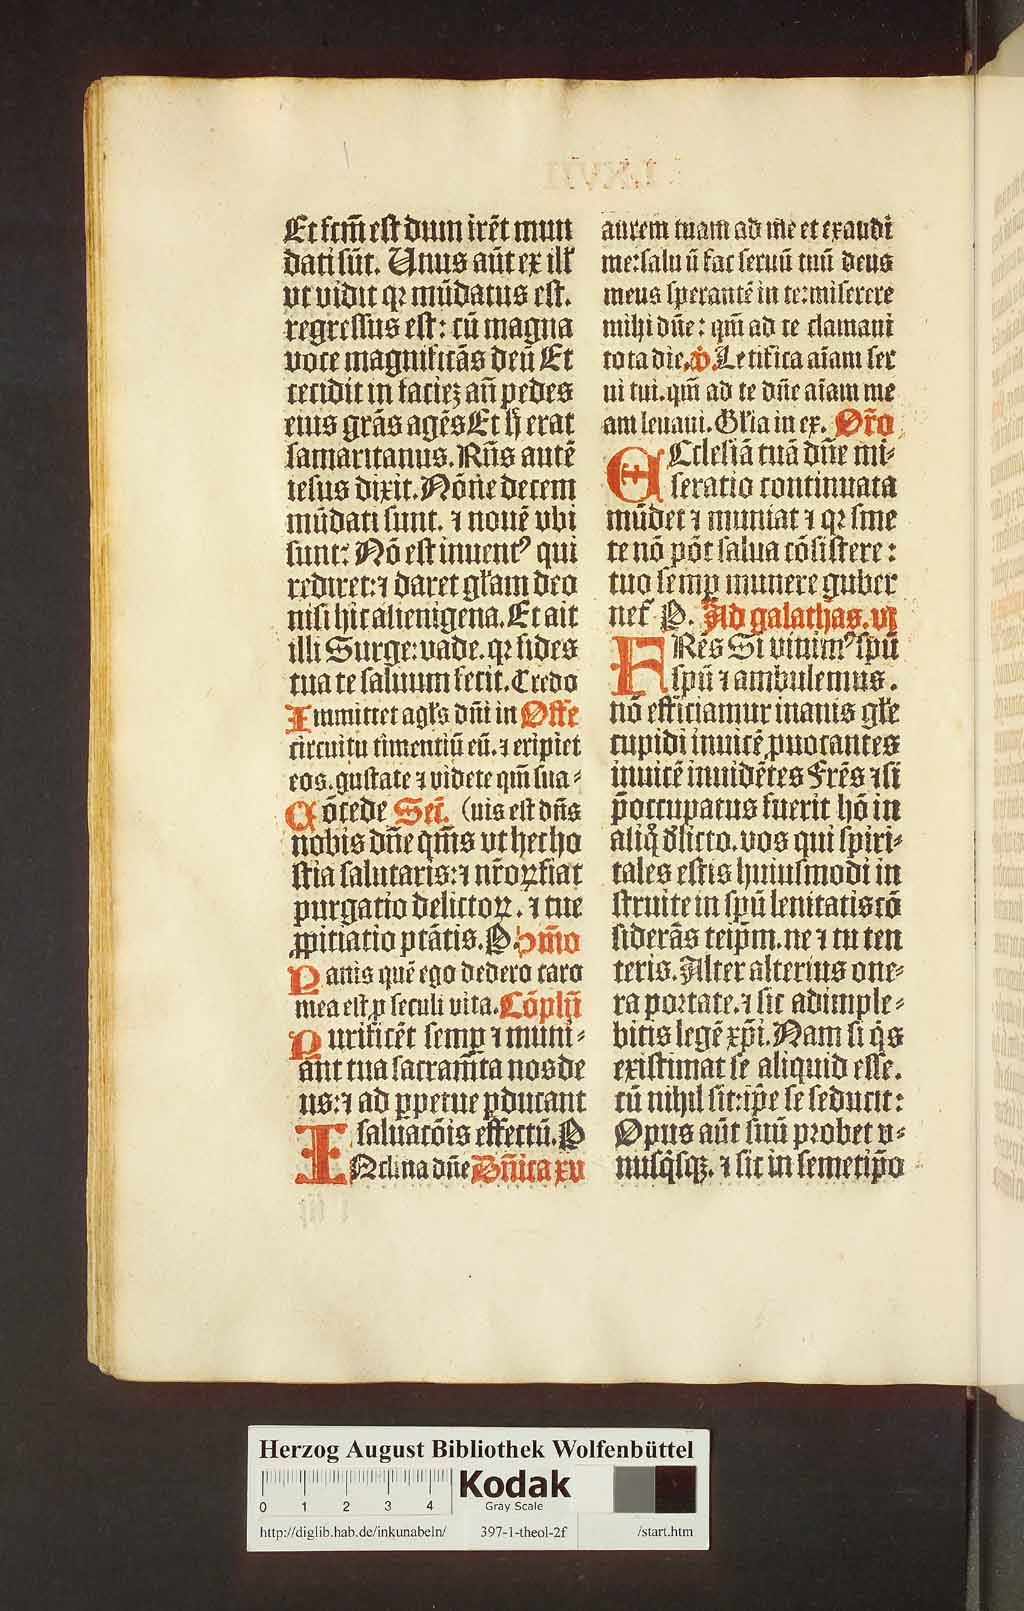 Et fcm̄ est dum irēt mun
dati sūt. Unus aūt ex ill'
vt vidit qꝛ mūdatus est.
regressus est: cū magna
voce magnificās deū Et
cecidit in faciez an̄ pedes
eius grās agēs Et h̄ erat
samaritanus. Rūs autē
iesus dixit. Nōne decem
mūdati sunt. ⁊ nouē vbi
sunt: Nō est inuentꝰ qui
rediret: ⁊ daret gl'am deo
nisi hic alienigena. Et ait
illi Surge: vade. qꝛ fides
tua te saluum fecit. Credo
Immittet agl's dn̄i in Offe
circuitu timentiū eū. ⁊ eripiet
eos. gustate ⁊ videte qm̄ sua⸗
Cōcede Secī. (uis est dn̄s
nobis dn̄e qm̄s vt hec ho
stia salutaris: ⁊ nr̄oꝝ fiat
purgatio delictoꝝ. ⁊ tue
ꝓpitiatio ptātis. P. Cōm̄o
Panis quē ego dedero caro
mea est ꝓ seculi vita. Cōplēn̄
Purificēt semꝑ ⁊ muni⸗
ant tua sacram̄ta nos de
us: ⁊ ad ꝑpetue ꝓducant
saluatōis effectū. P
INclina dn̄e Dn̄ica xv
LXVII
aurem tuam ad me et exaudi
me: saluū fac seruū tuū deus
meus sperantē in te: miserere
mihi dn̄e: qm̄ ad te clamaui
tota die. v̄. Letifica aīam ser
ui tui. qm̄ ad te dn̄e aīam me
am leuaui. Gl'ia in ex. Or̄o
ECclesiā tuā dn̄e mi⸗
seratio continuata
mūdet ⁊ muniat ⁊ qꝛ sine
te nō pōt salua cōsistere:
tuo semꝑ munere guber
net'. P. Ad galathas. vj
FRēs Si viuimꝰ spū
spū ⁊ ambulemus.
nō efficiamur inanis gl'e
cupidi inuicē ꝓuocantes
inuicē inuidētes Frēs ⁊ si
p̄occupatus fuerit hō in
aliq̄ delicto. vos qui spiri⸗
tales estis huiusmodi in
struite in spū lenitatis cō
siderās teip̄m. ne ⁊ tu ten
teris. Alter alterius one⸗
ra portate. ⁊ sic adimple⸗
bitis legē xp̄i. Nam si q̄s
existimat se aliquid esse.
cū nihil sit: ip̄e se seducit:
Opus aūt suū probet v⸗
nusq̄sqꝫ. ⁊ sic in semetip̄o
Herzog August Bibliothek Wolfenbüttel
0 1 2 3 4
Kodak
Gray Scale
http://diglib.hab.de/inkunabeln/ 397-1-theol-2f /start.htm